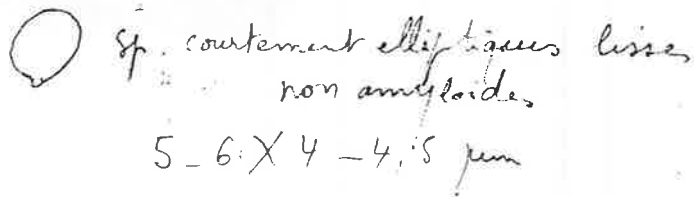 Sp. courtement elliptiques lisses
non amyloides
5 - 6 X 4 - 4,5 µm